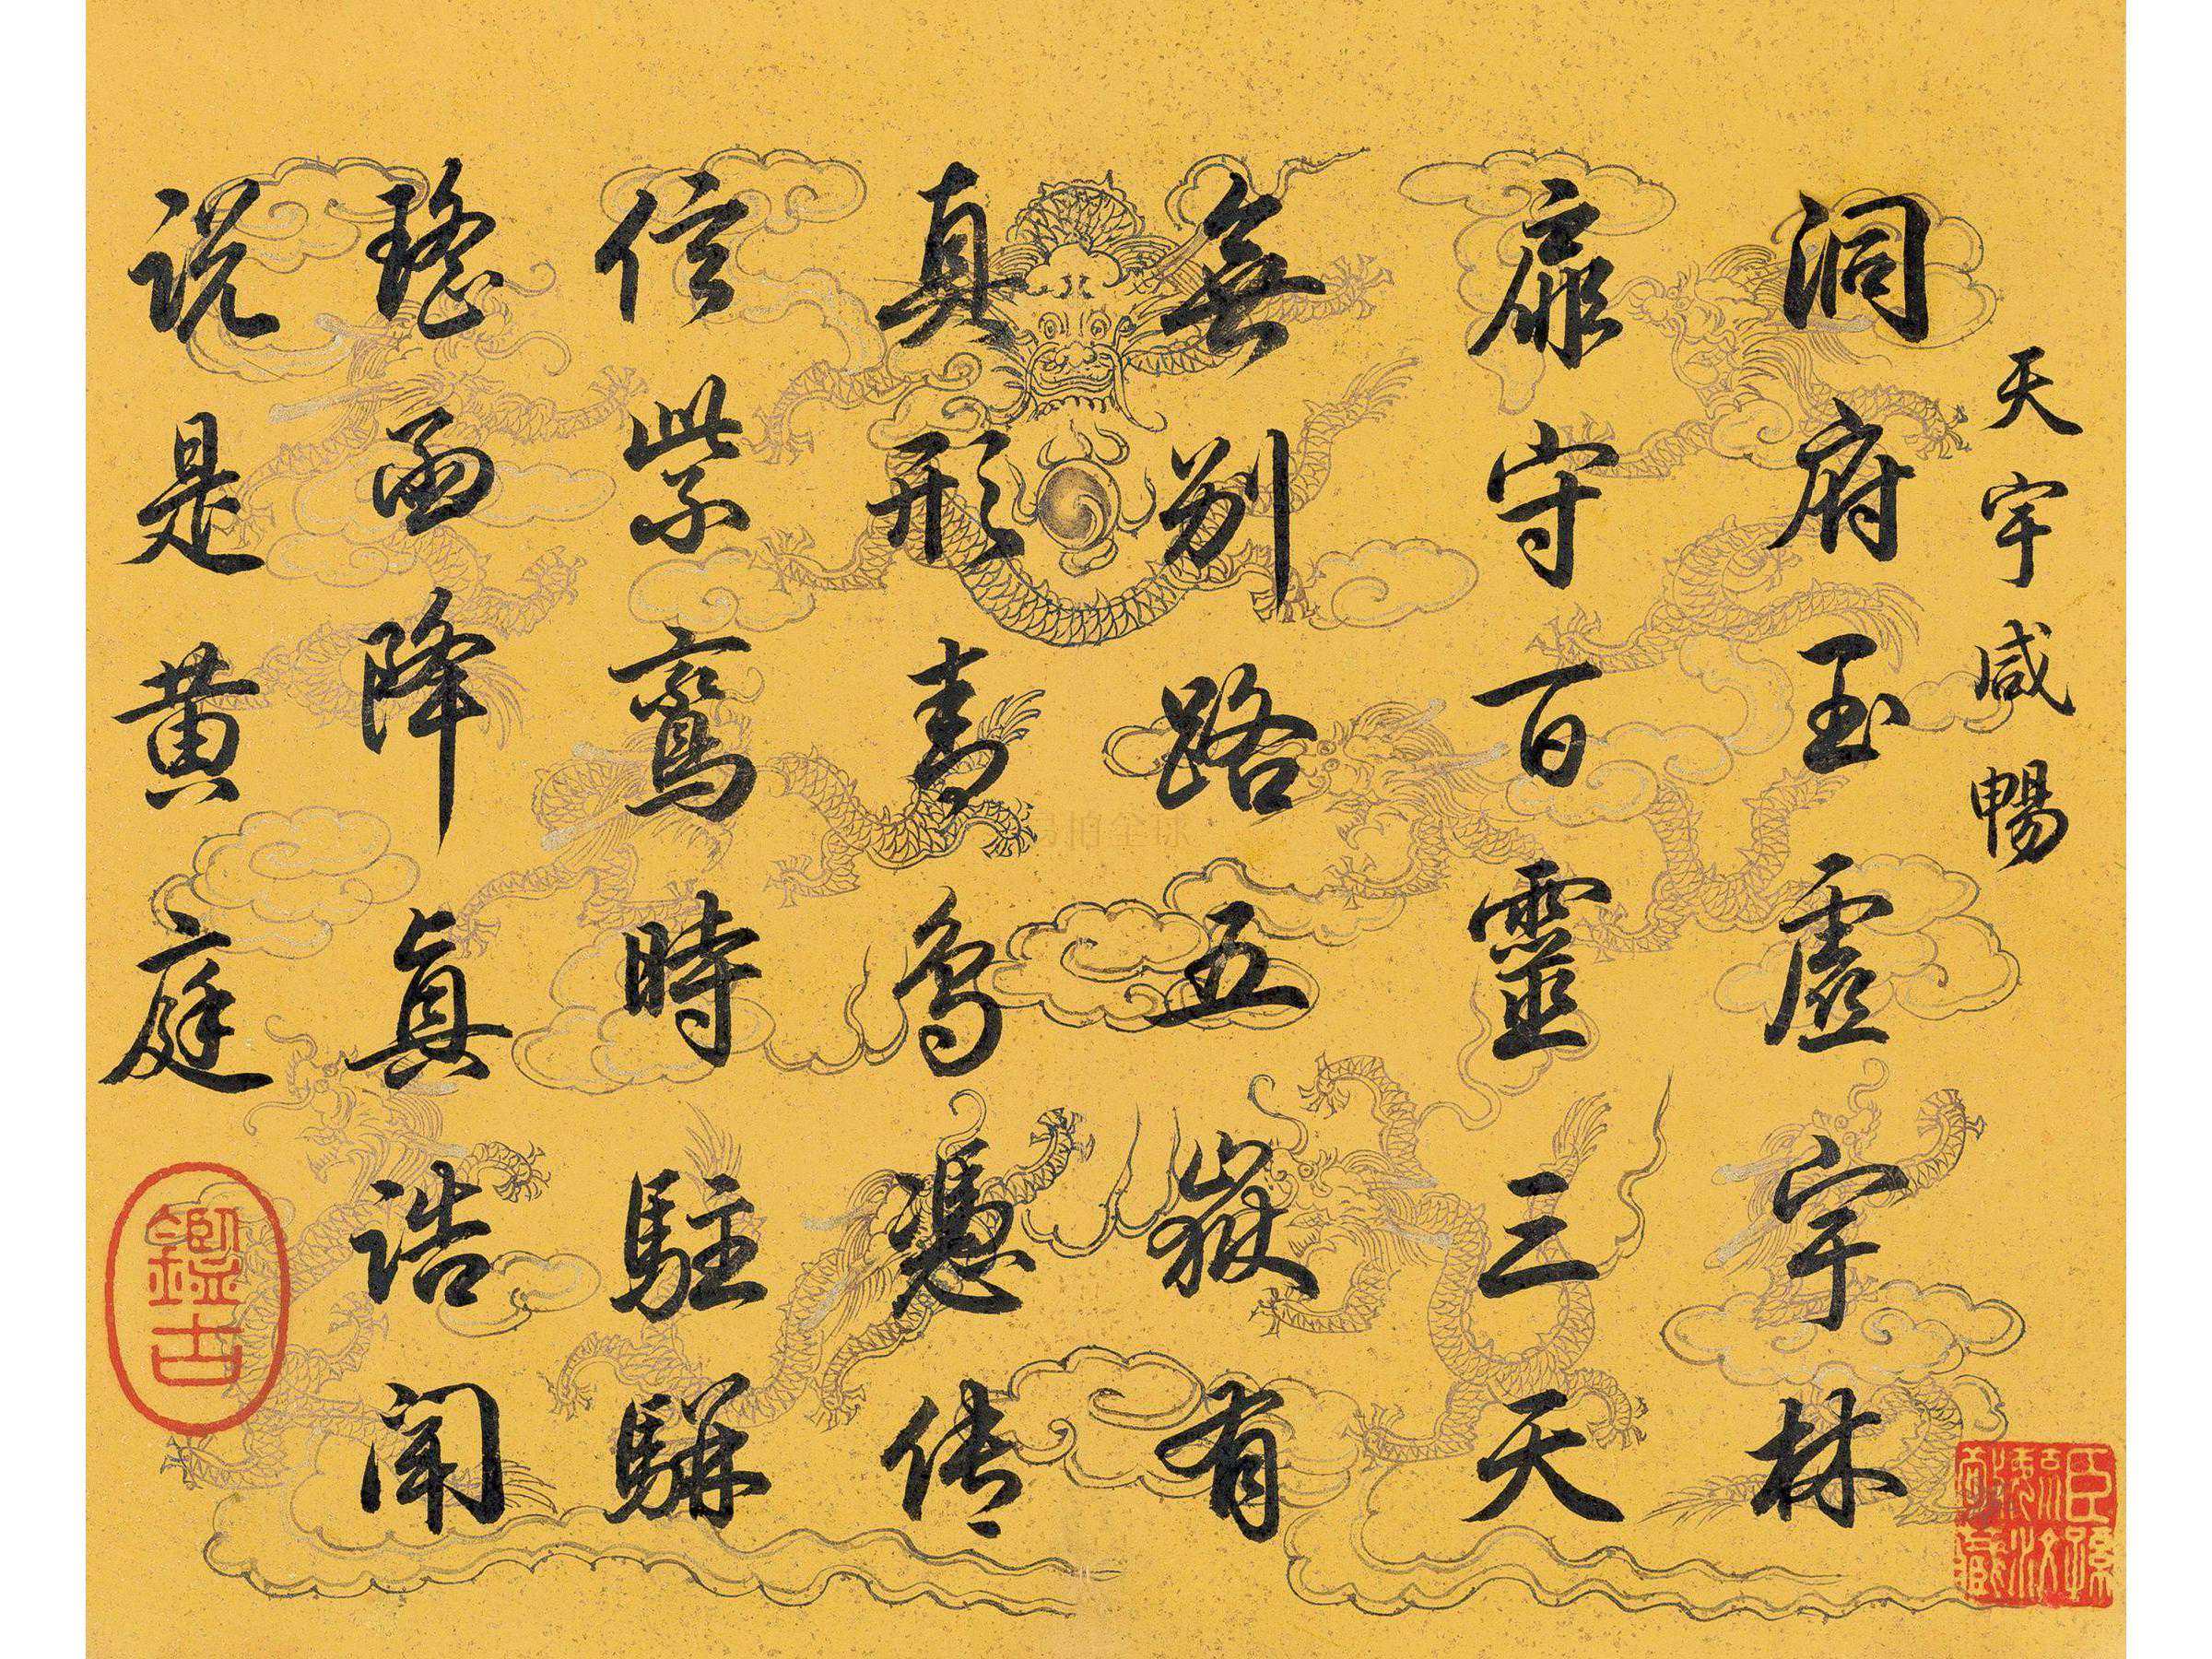 天宇咸暢
洞府玉虛宇林
扉守百靈三天
無別路五嶽有
真形青鳥憑傳
信紫鸞時駐騈
瑤函降真誥聞
說是黃庭
鑑古
易拍全球